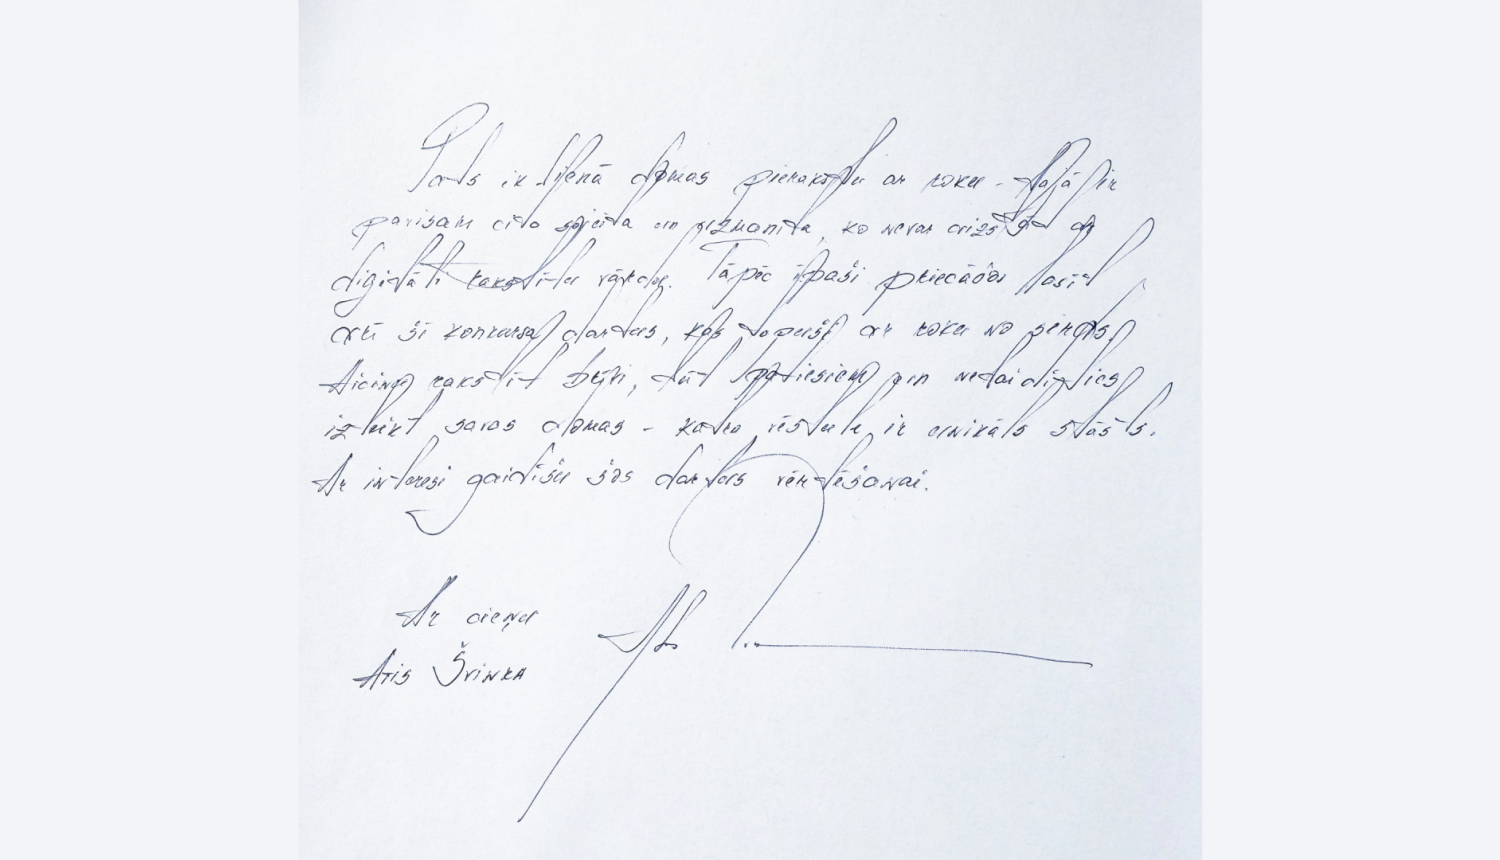 Pats ik dienā domas pierakstu ar roku - tajā ir
pavisam cita sajūta un nozīme, ko nevar aizstāt ar
digitāli rakstītu vārdu. Tāpēc īpaši priecāšos lasīt
arī šī konkursa darbus, kas tapuši ar roku no sirds.
Aicinu rakstīt brīvi, būt patiesiem un nebaidīties
izteikt savas domas - katra vēstule ir unikāls stāsts.
Ar interesi gaidīšu šos darbus vērtēšanai.
Ar cieņu
Atis Švinka